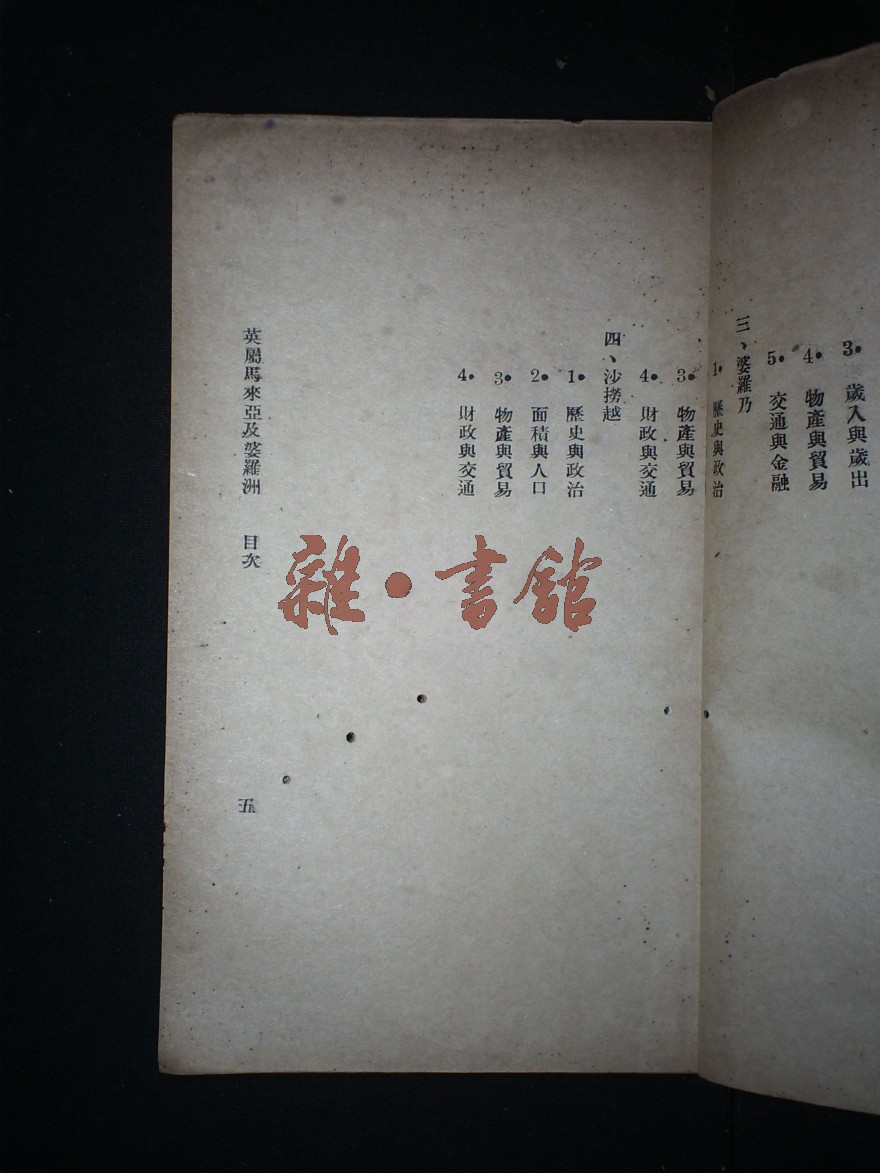 3. 歲入與歲出
4. 物產與貿易
5. 交通與金融
三、婆羅乃
1. 歷史與政治
3. 物產與貿易
4. 財政與交通
四、沙撈越
1. 歷史與政治
2. 面積與人口
3. 物產與貿易
4. 財政與交通
英屬馬來亞及婆羅洲 目次
五
雜·書館